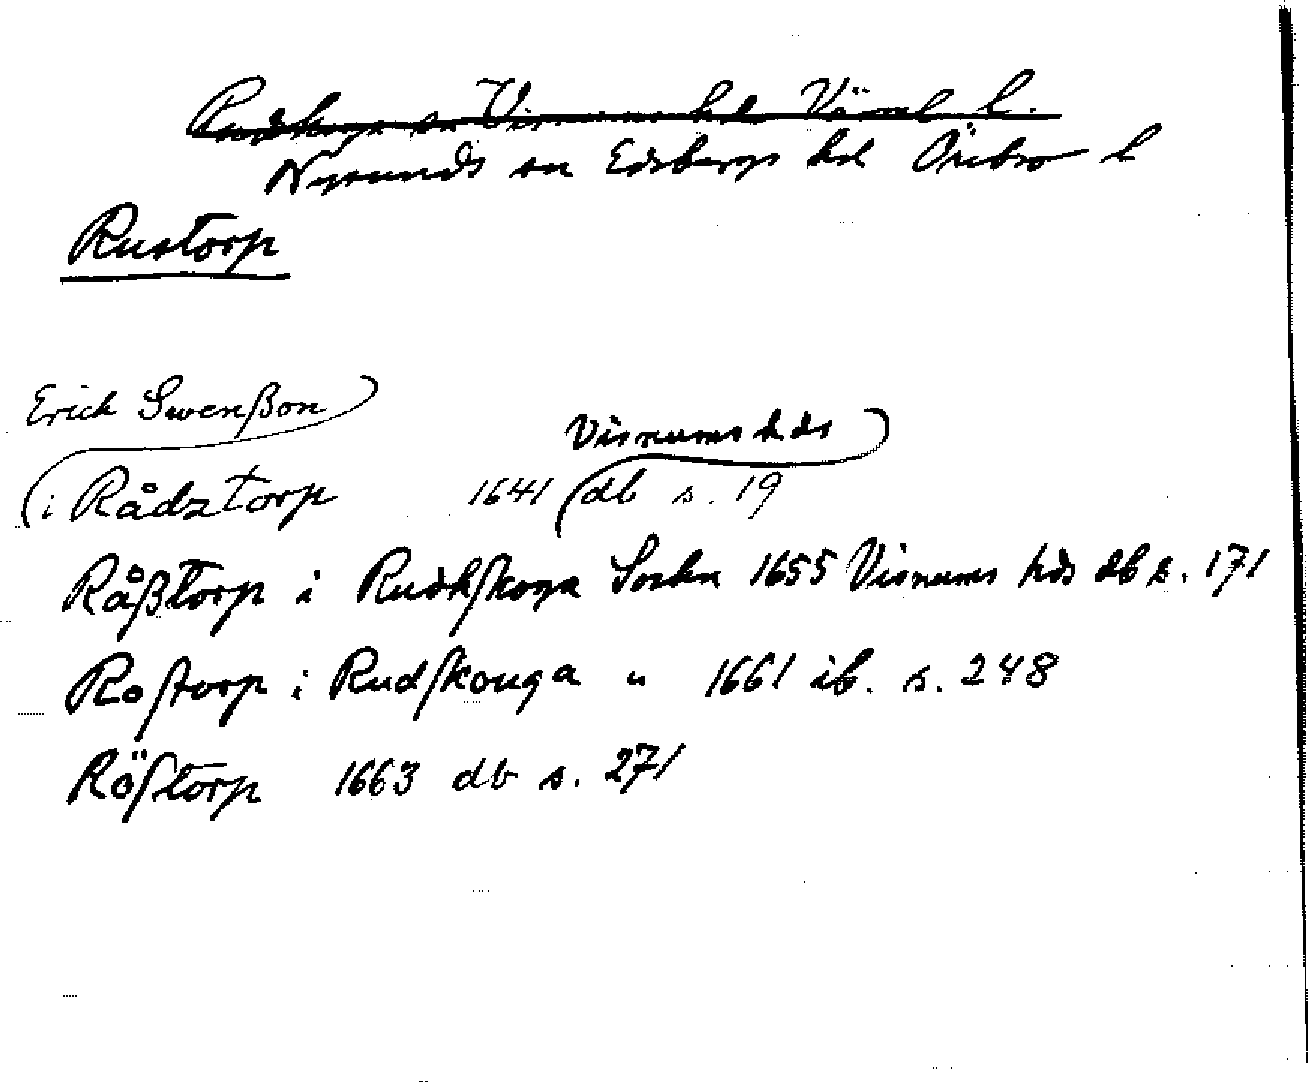 Rudskoga sn Visnums hd Värml l.
Nysunds sn Edsbergs hd Örebro l
Rustorp
Erick Swenßon
i Rådztorp 1641 Visnums hds db s. 19
Råßtorp i Rudhskoga Sochn 1655 Visnums hds db s. 171
Rostorp i Rudskouga " 1661 ib. s. 248
Röstorp 1663 db s. 271